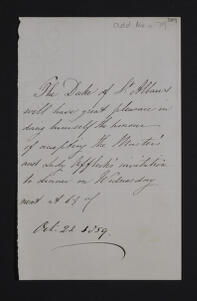 The Duke of St Albans
will have great pleasure in
doing himself the honour
of accepting the Master's
and Lady Affleck's invitation
to dinner on Wednesday
next at 6 3/4
Oct. 22 1859.